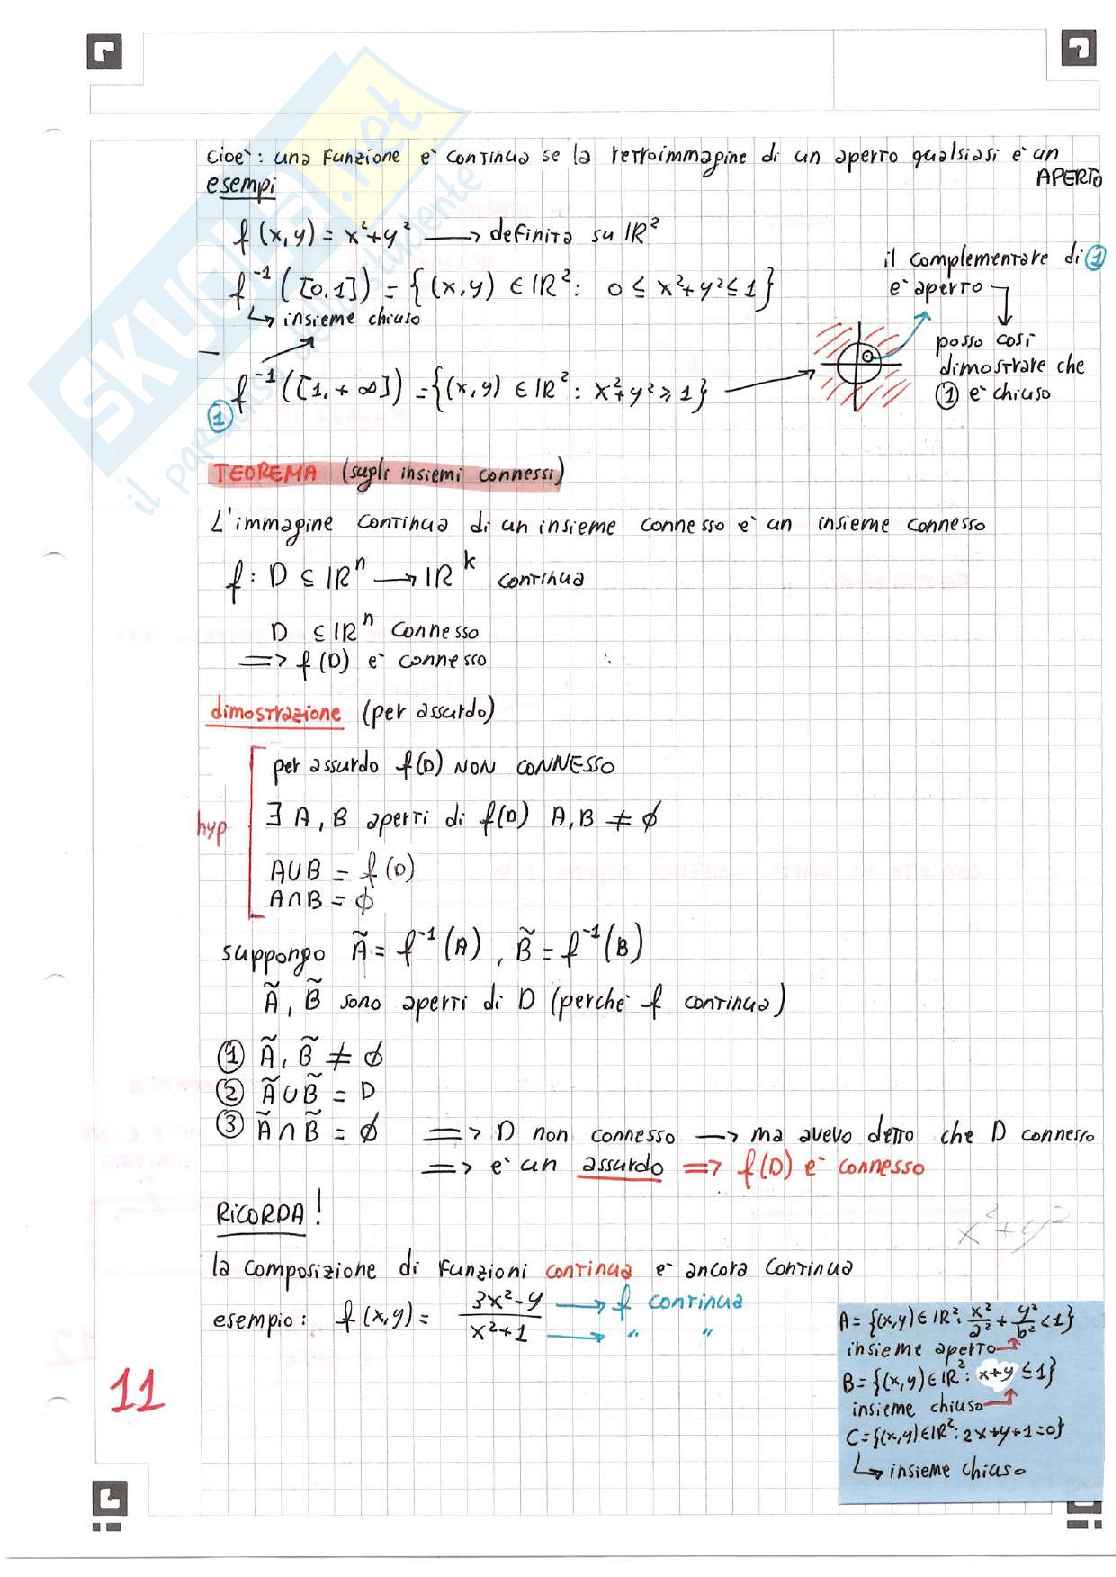 cioè: una funzione è continua se la retroimmagine di un aperto qualsiasi è un APERTO
esempi
f(x,y) = x²+y² → definita su ℝ²
f⁻¹([0,1]) = {(x,y) ∈ ℝ²: 0 ≤ x²+y² ≤ 1}
↳ insieme chiuso
① f⁻¹([1,+∞]) = {(x,y) ∈ ℝ²: x²+y² ≥ 1} →
il complementare di ①
è aperto
posso così
dimostrare che
① è chiuso
TEOREMA (sugli insiemi connessi)
L'immagine continua di un insieme connesso è un insieme connesso
f: D ⊆ ℝⁿ → ℝᵏ continua
D ⊆ ℝⁿ connesso
=> f(D) è connesso
dimostrazione (per assurdo)
hyp
per assurdo f(D) NON CONNESSO
∃ A, B aperti di f(D) A,B ≠ ∅
A∪B = f(D)
A∩B = ∅
suppongo Ã = f⁻¹(A), B̃ = f⁻¹(B)
Ã, B̃ sono aperti di D (perché f continua)
① Ã, B̃ ≠ ∅
② Ã∪B̃ = D
③ Ã∩B̃ = ∅ => D non connesso → ma avevo detto che D connesso
=> è un assurdo => f(D) è connesso
RICORDA!
x²+y²
la composizione di funzioni continua è ancora continua
esempio: f(x,y) = (3x²-y)/(x²+1) → f continua
→ " "
A = {(x,y) ∈ ℝ²: x²/a² + y²/b² < 1}
insieme aperto
B = {(x,y) ∈ ℝ²: x+y ≤ 1}
insieme chiuso
C = {(x,y) ∈ ℝ²: 2x+y+1=0}
↳ insieme chiuso
11
SKUOLA.net